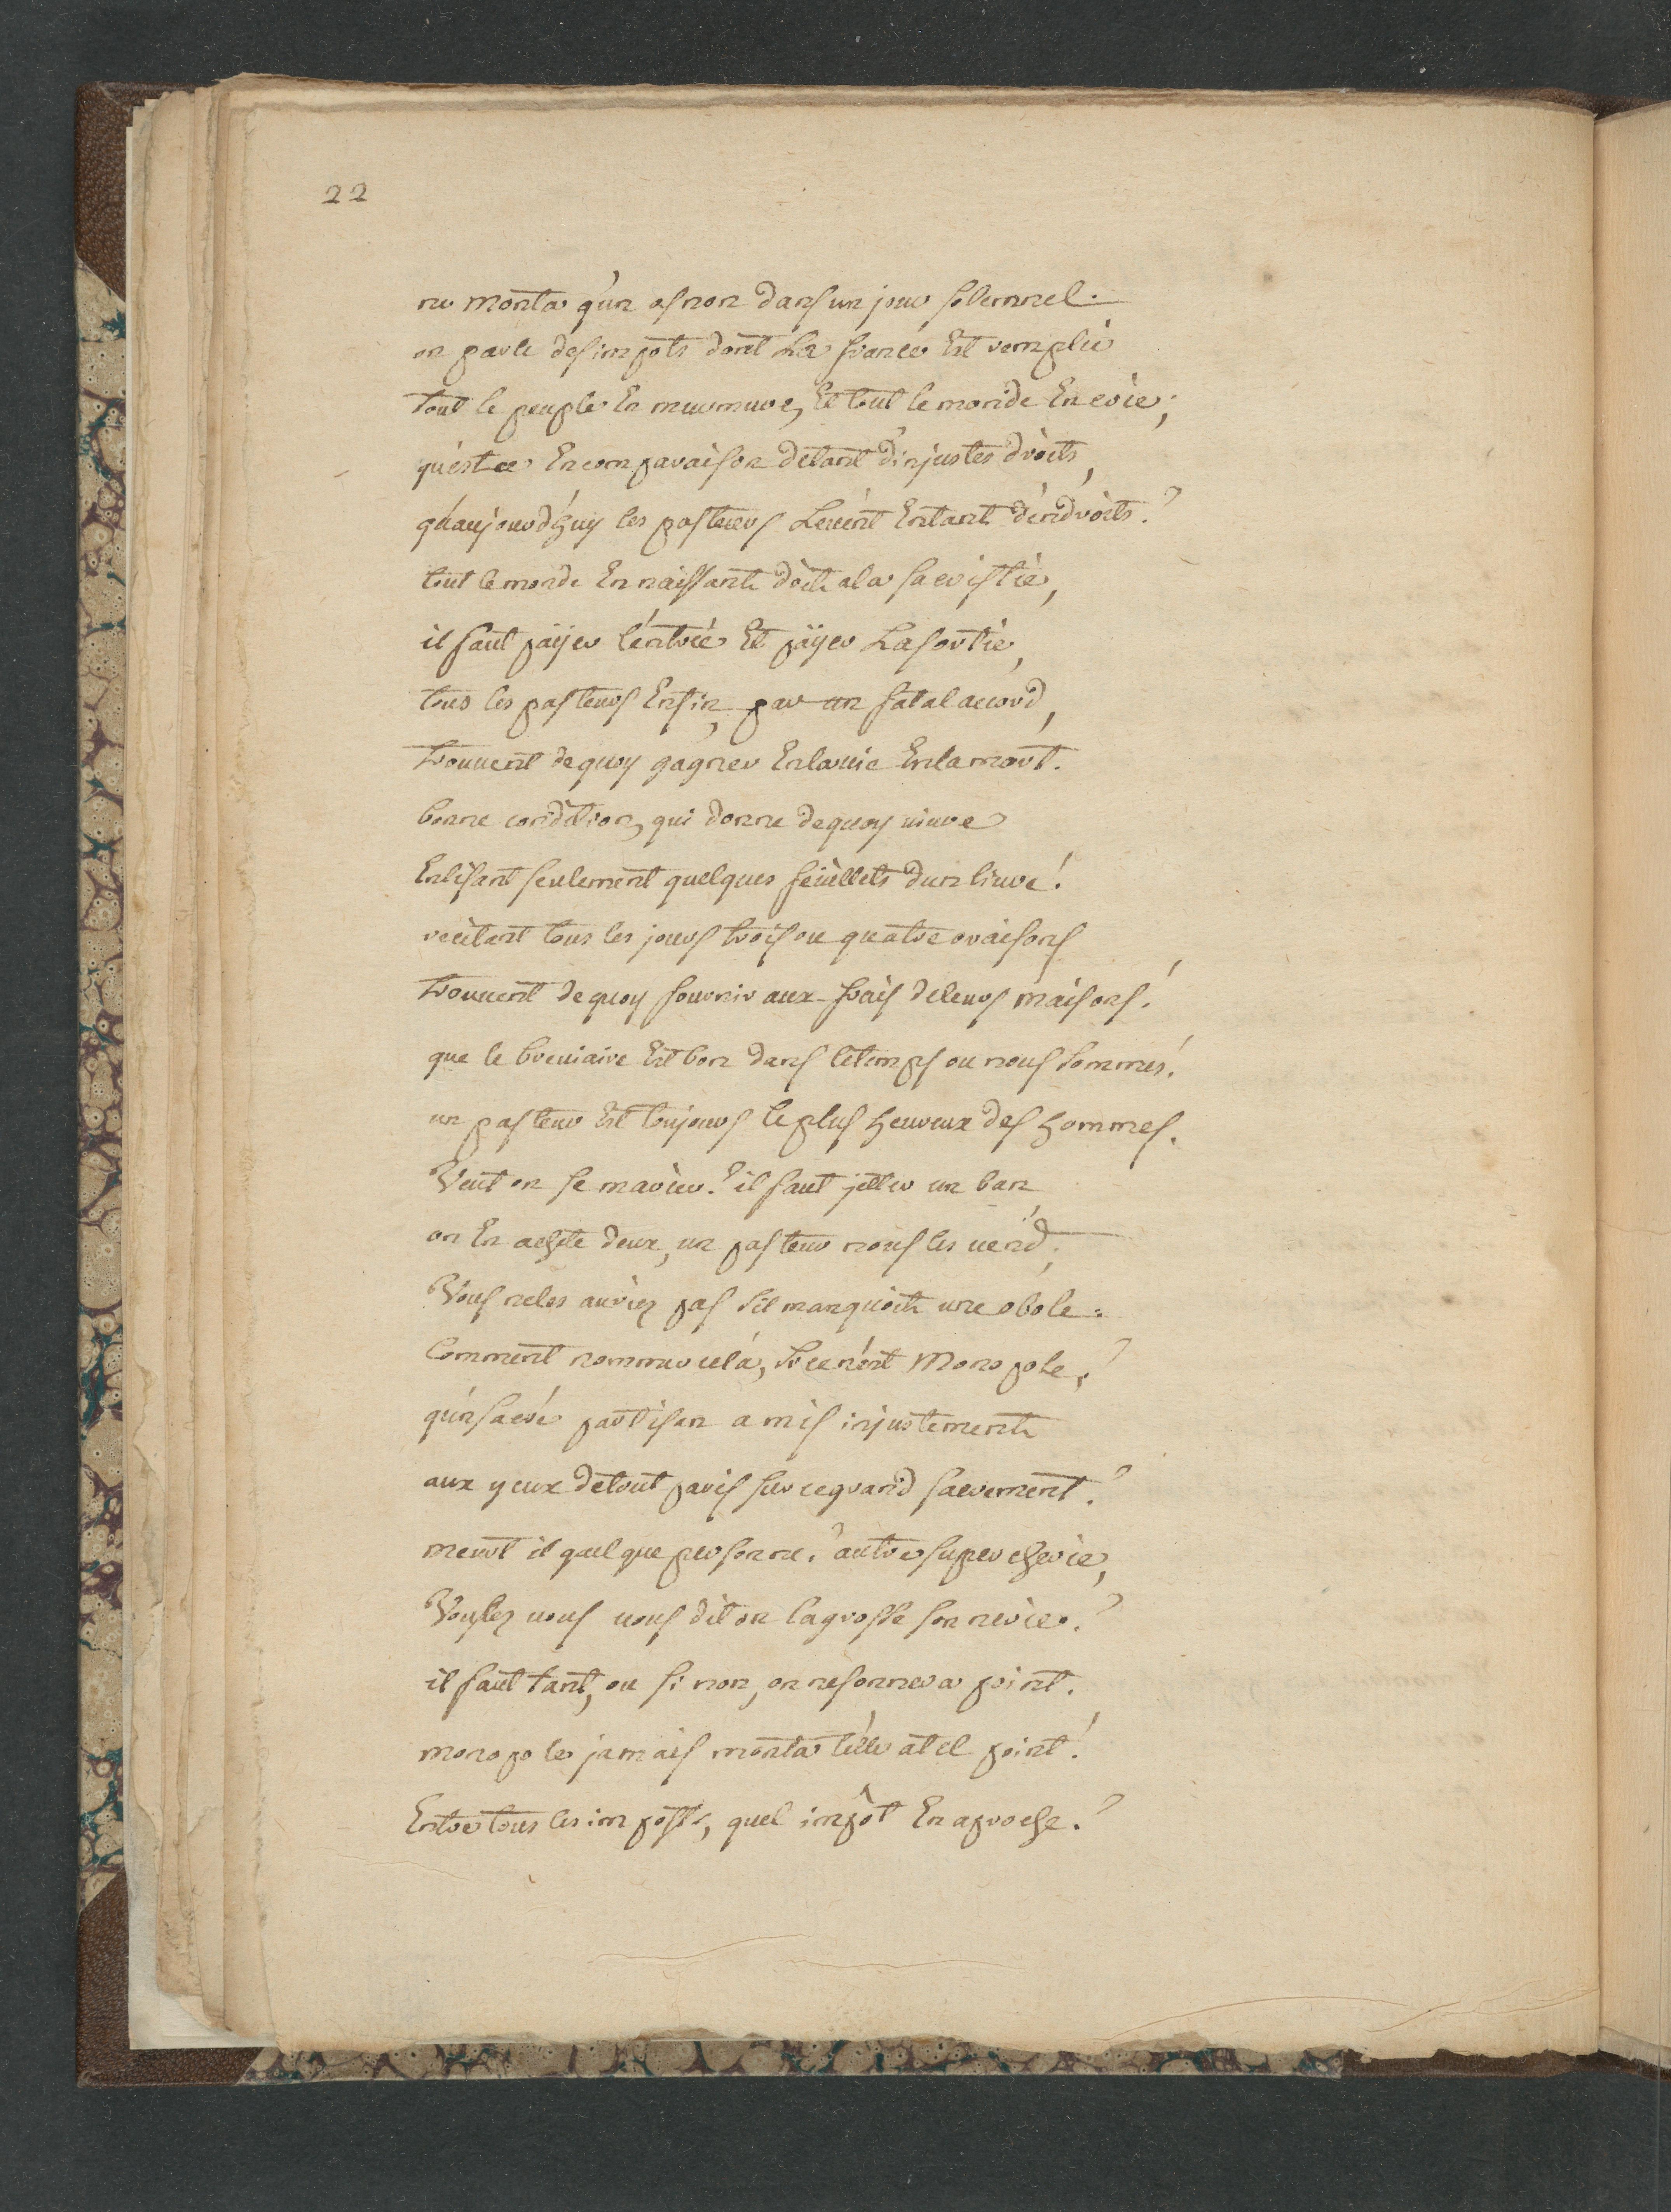 22
ne monta qu'un asnon dans un jour solemnel.
on parle des impots dont La france Est remplie
Tout le peuple En murmure, Et tout le monde En crie;
qu'est ce En comparaison de tant d'injustes droits,
qu'aujourd'huy les pasteurs Levent En tant d'endroits?
tout le monde En naissant doit a la sacristie,
il faut païjer l'entrée Et païjer La sortie,
tous les pasteurs Enfin, par un fatal accord,
Trouvent de quoy gagner En la uie En la mort.
bonne condition, qui donne de quoy uiure
En lisant seulement quelques feüillets d'un liure!
recitant tous les jours trois ou quatre oraisons
Trouuent de quoy fournir aux frais de leurs maisons!
que le breuiaire Est bon dans le temps ou nous sommes!
un pasteur Est toujours le plus heureux des hommes.
Veut on se marier? il faut jetter un ban
on En achete deux, un pasteur nous les uend;
Vous ne les auriez pas s'il manquoit une obole:
Comment nommer cela, si ce n'est Monopole?
qu'un sacré partisan a mis injustement
aux yeux de tout paris sur ce grand sacrement?
meurt il quelque personne? autre supercherie,
Voulez uous uous dit on la grosse sonnerie?
il faut tant, ou si non, on ne sonnera point.
monopole jamais monta t'elle a tel point!
Entre tous les imposts, quel impôt En aproche?